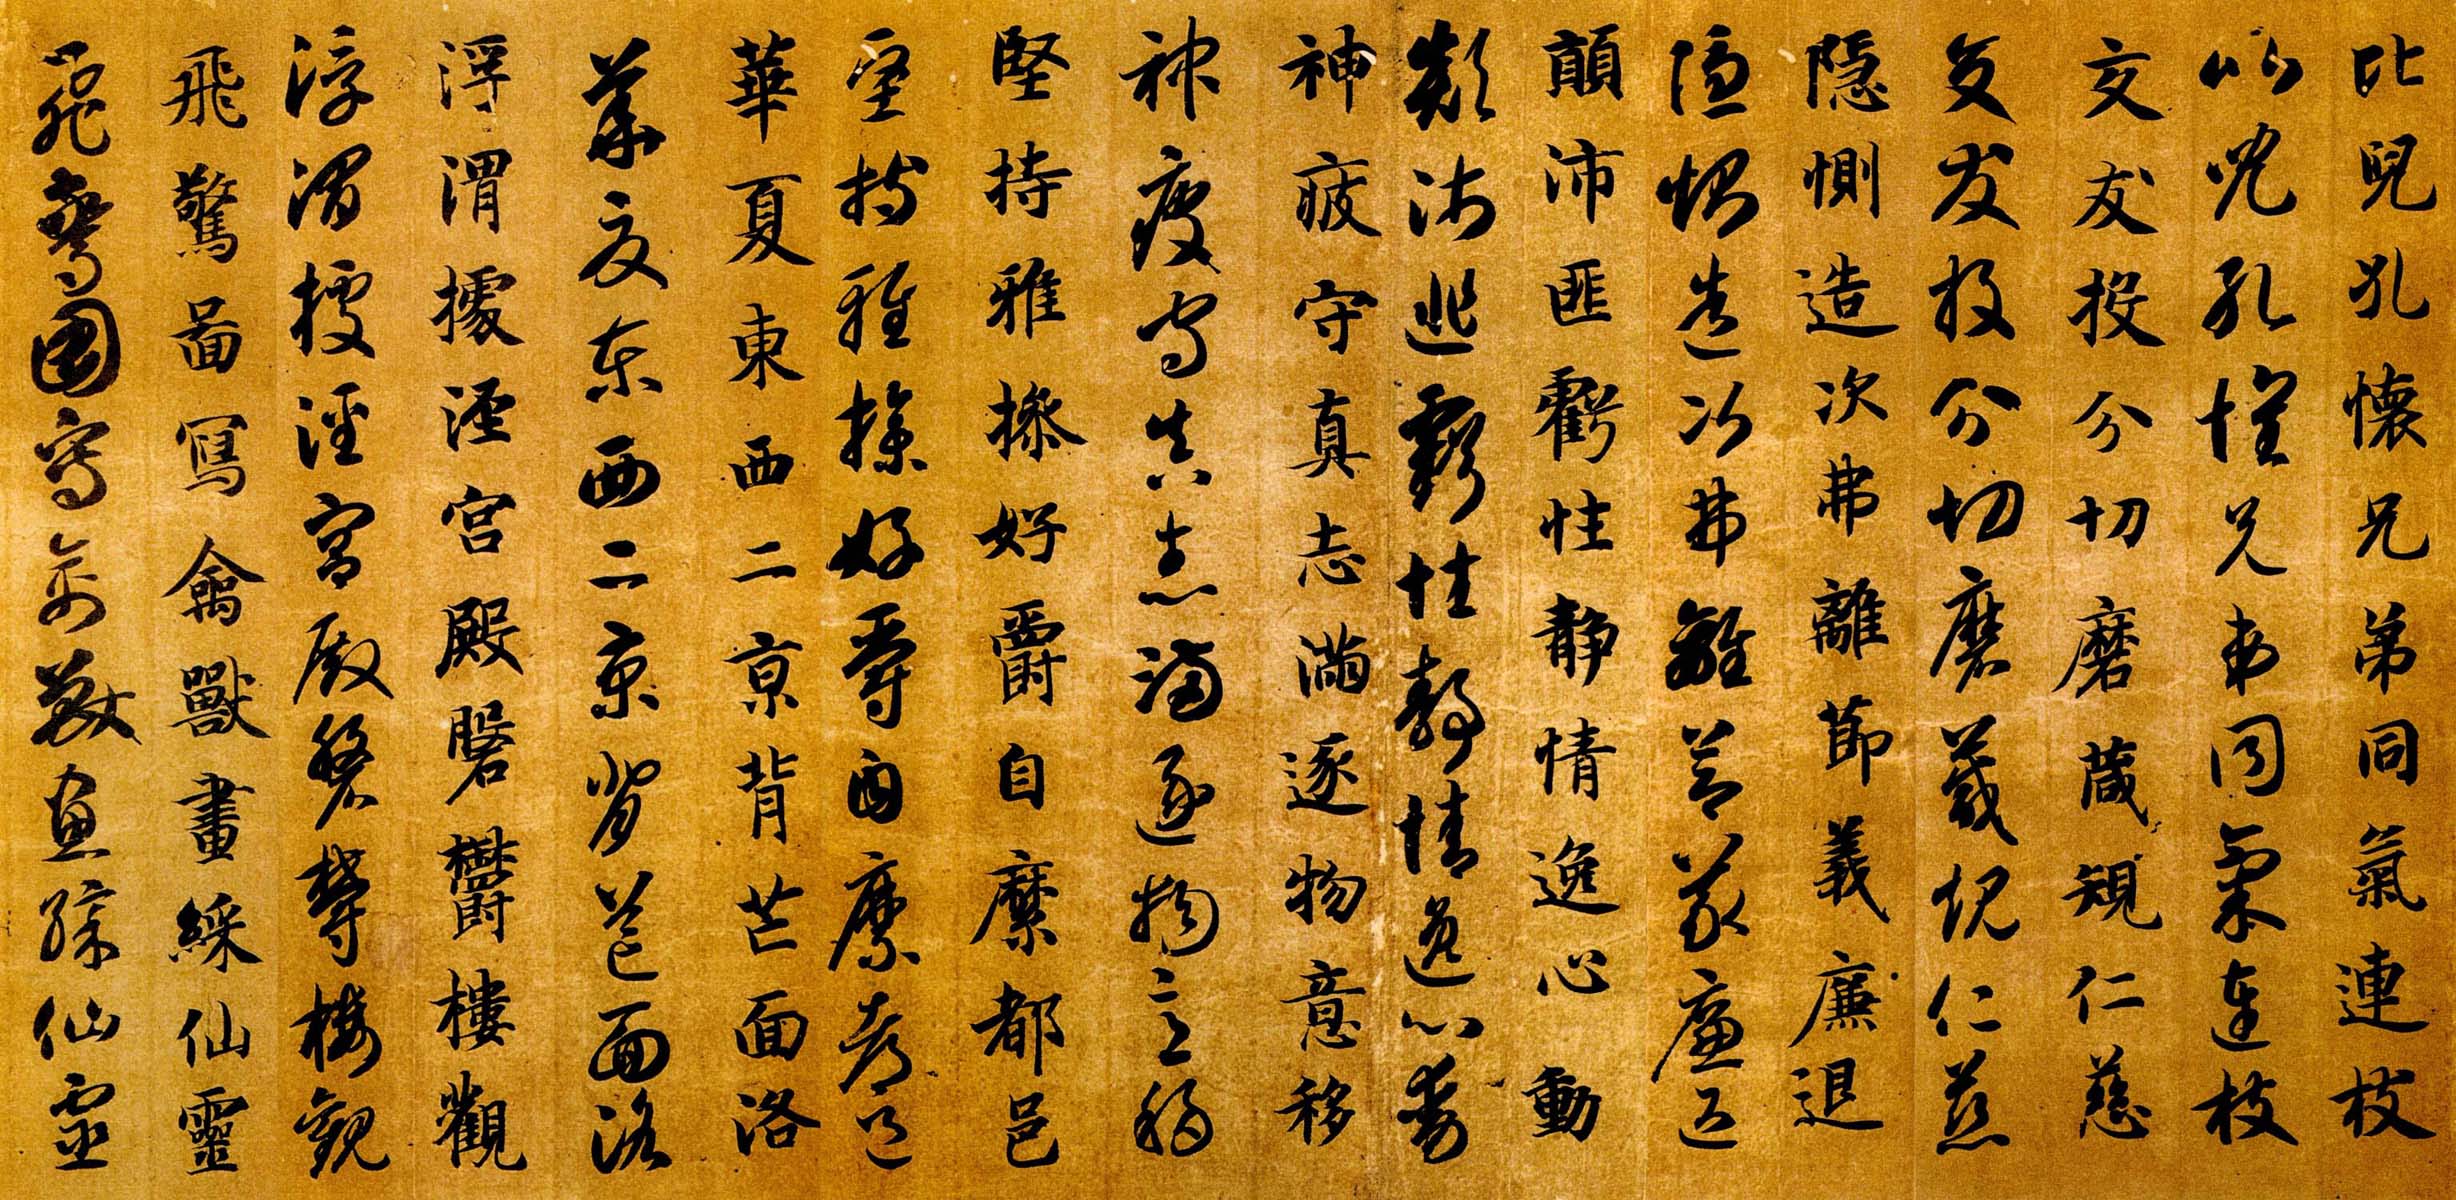 比兒孔懷兄弟同氣連枝
比兒孔懷兄弟同氣連枝
交友投分切磨箴規仁慈
交友投分切磨箴規仁慈
隱惻造次弗離節義廉退
隱惻造次弗離節義廉退
顛沛匪虧性靜情逸心動
顛沛匪虧性靜情逸心動
神疲守真志滿逐物意移
神疲守真志滿逐物意移
堅持雅操好爵自縻都邑
堅持雅操好爵自縻都邑
華夏東西二京背芒面洛
華夏東西二京背芒面洛
浮渭據涇宮殿磐鬱樓觀
浮渭據涇宮殿磐鬱樓觀
飛驚圖寫禽獸畫綵仙靈
飛驚圖寫禽獸畫綵仙靈